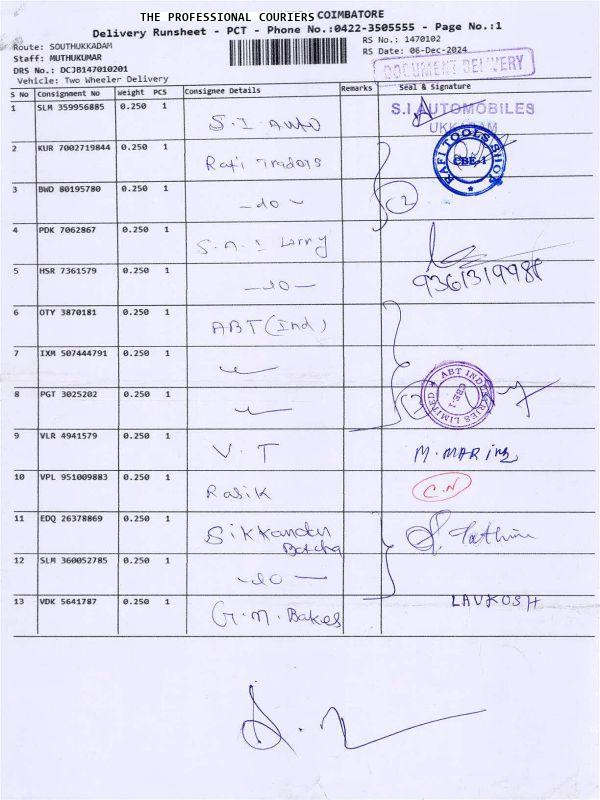 THE PROFESSIONAL COURIERS COIMBATORE
Delivery Runsheet - PCT - Phone No.:0422-3505555 - Page No.:1
Route: SOUTHUKKADAM
RS No.: 1470102
Staff: MUTHUKUMAR
RS Date: 06-Dec-2024
DRS No.: DCJB147010201
Vehicle: Two Wheeler Delivery
DOCUMENT DELIVERY
S No Consignment No Weight PCS Consignee Details Remarks Seal & Signature
1 SLM 359956885 0.250 1 S.I Auto
S.I.AUTOMOBILES
UKKADAM
2 KUR 7002719844 0.250 1 Rafi Traders
RAFI TOOLS SHOP
CBE-1
3 BWD 80195780 0.250 1 -do- 2
4 PDK 7062867 0.250 1 S.M.I Lorry
5 HSR 7361579 0.250 1 -do-
6 OTY 3870181 0.250 1 ABT (Ind)
7 IXM 507444791 0.250 1
8 PGT 3025202 0.250 1
ABT INDUSTRIES LIMITED
CBE-1
9 VLR 4941579 0.250 1 V.T M.MARIM
10 VPL 951009883 0.250 1 Rasik C.N
11 EDQ 26378869 0.250 1 Sikkander
Batcha
12 SLM 360052785 0.250 1 -do-
13 VDK 5641787 0.250 1 G.M.Bakes LAVKOSH